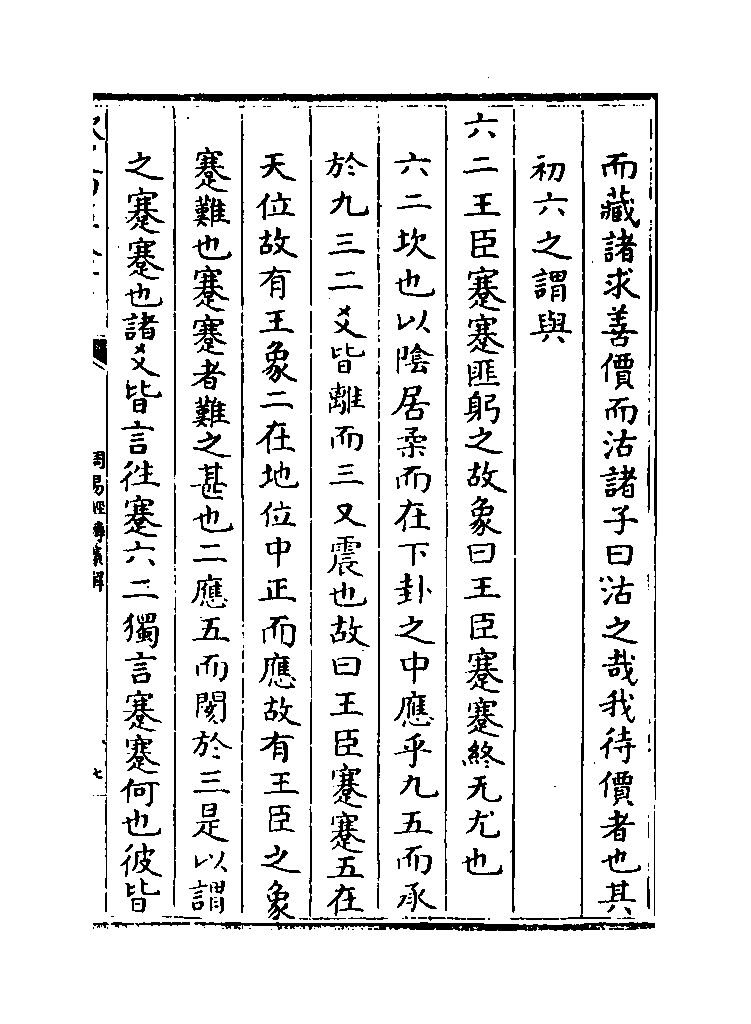 而藏諸求善價而沽諸子曰沽之哉我待價者也其
初六之謂與
六二王臣蹇蹇匪躬之故象曰王臣蹇蹇終无尤也
六二坎也以陰居柔而在下卦之中應乎九五而承
於九三二爻皆離而三又震也故曰王臣蹇蹇五在
天位故有王象二在地位中正而應故有王臣之象
蹇難也蹇蹇者難之甚也二應五而閡於三是以謂
之蹇蹇也諸爻皆言徃蹇六二獨言蹇蹇何也彼皆
周易經傳集解
七